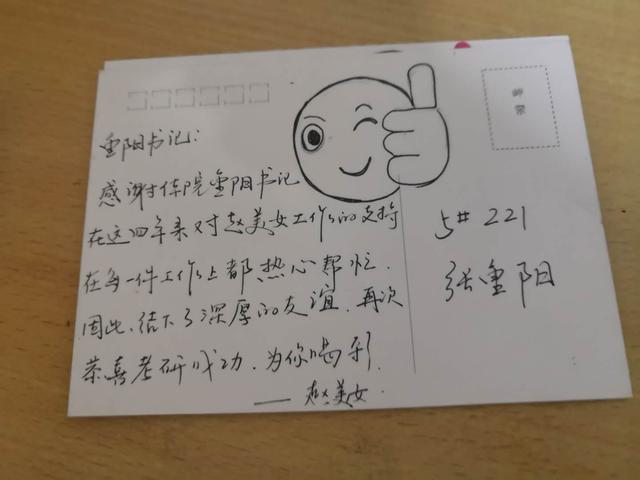 邮票
重阳书记：
感谢体院重阳书记
在这四年来对赵美女工作的支持
在每一件工作上都热心帮忙.
因此、结下了深厚的友谊.再次
恭喜考研成功.为你喝彩.
——赵美女.
5# 221
张重阳